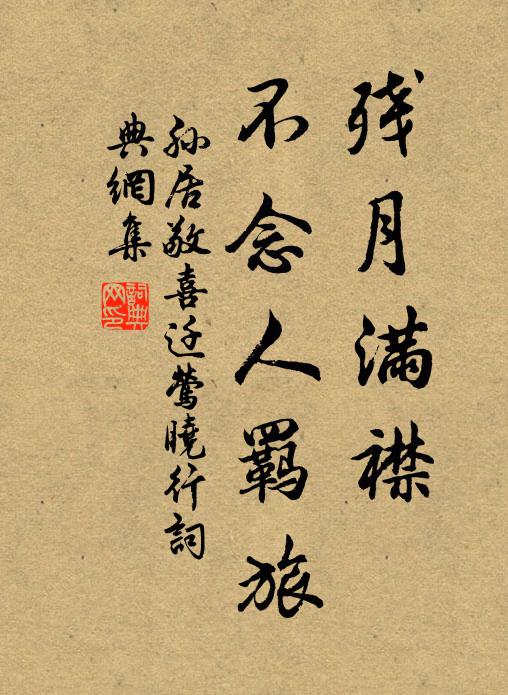 残月满襟
不念人羁旅
孙居敬喜迁莺晓行词
典網集
詞典網印